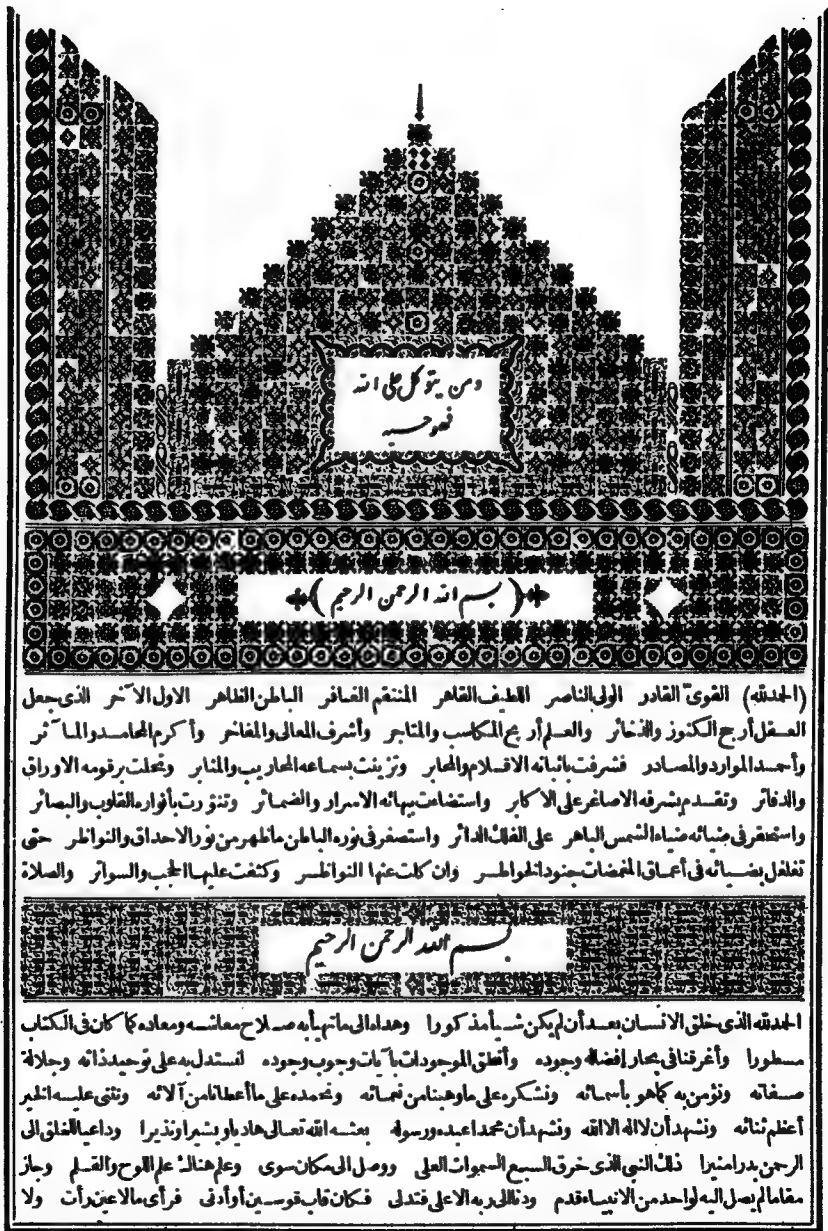 ومن يتوكل على الله
فهو حسبه
بسم الله الرحمن الرحيم
(الحمدلله) القوىّ القادر الولى الناصر اللطيف القاهر المنتقم الغافر الباطن الظاهر الاول الآخر الذى جعل
العقل أرجح الكنوز والذخائر والعلم أربح المكاسب والمتاجر وأشرف المعالى والمفاخر وأكرم المحامد والمآثر
وأحمد الموارد والمصادر فشرفت باثباته الاقلام والمحابر وتزينت بسماعه المحاريب والمنابر وتحلت برقومه الاوراق
والدفاتر وتقدم بشرفه الاصاغر على الاكابر واستضاءت ببهائه الاسرار والضمائر وتنوّرت بأنواره القلوب والبصائر
واستحقر فى ضيائه ضياء الشمس الباهر على الفلك الدائر واستصغر فى نوره الباطن ما ظهر من نور الاحداق والنواظر حتى
تغلغل بضيائه فى أعماق المغمضات جنود الخواطر وان كلت عنها النواظر وكثفت عليها الحجب والسواتر والصلاة
بسم الله الرحمن الرحيم
الحمدلله الذى خلق الانسان بعد أن لم يكن شيأ مذكورا وهداه الى ما تهيأ به صلاح معاشه ومعاده كما كان فى الكتاب
مسطورا وأغرقنا فى بحار إفضاله وجوده وأنطق الموجودات بآيات وجوب وجوده لنستدل به على توحيد ذاته وجلالة
صفاته ونؤمن به كما هو بأسمائه ونشكره على ما وهبنا من نعمائه ونحمده على ما أعطانا من آلائه ونثنى عليه الخير
أعظم ثنائه ونشهد أن لا اله الا الله ونشهد أن محمدا عبده ورسوله بعثه الله تعالى هاديا وبشيرا ونذيرا وداعيا للخلق الى
الرحمن بدرا منيرا ذلك النبى الذى خرق السبع السموات العلى ووصل الى مكان سوى وعلم هنالك علم اللوح والقلم وجاز
مقاما لم يصل اليه لواحد من الانبياء قدم ودنا الى ربه الاعلى فتدلى فكان قاب قوسين أو أدنى فرأى ما لا عين رأت ولا